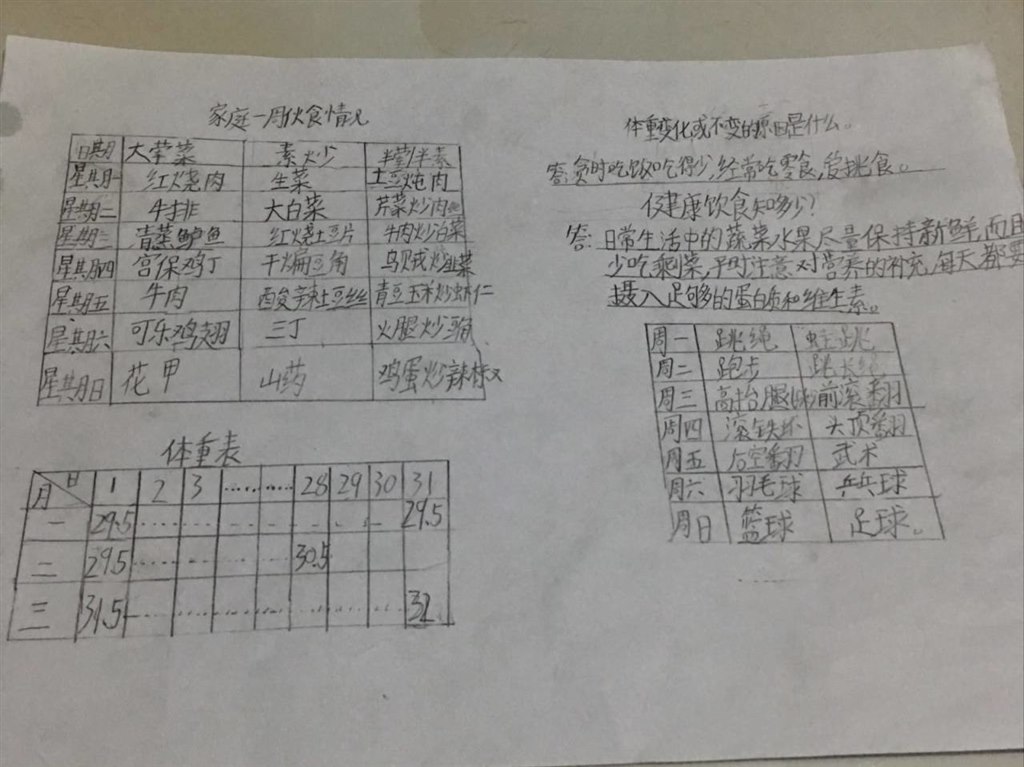 家庭一周伙食情况
日期 大荤菜 素炒 半荤半素
星期一 红烧肉 生菜 土豆炖肉
星期二 牛排 大白菜 芹菜炒肉
星期三 清蒸鲈鱼 红烧土豆片 牛肉炒白菜
星期四 宫保鸡丁 干煸豆角 乌贼炒韭菜
星期五 牛肉 酸辣土豆丝 青豆玉米炒虾仁
星期六 可乐鸡翅 三丁 火腿炒
星期日 花甲 山药 鸡蛋炒辣椒
体重表
日 月 1 2 3 …… …… 28 29 30 31
一 29.5 29.5
二 29.5 30.5
三 31.5 32
体重变化或不变的原因是什么。
答:贪时吃饭吃得少,经常吃零食,爱挑食。
健康饮食知多少?
答:日常生活中的蔬菜水果尽量保持新鲜,而且
少吃剩菜,平时注意对营养的补充,每天都要
摄入足够的蛋白质和维生素。
周一 跳绳 蛙跳
周二 跑步 跳长绳
周三 高抬腿 前滚翻
周四 滚铁环 大顶翻
周五 后空翻 武术
周六 羽毛球 乒乓球
周日 篮球 足球。